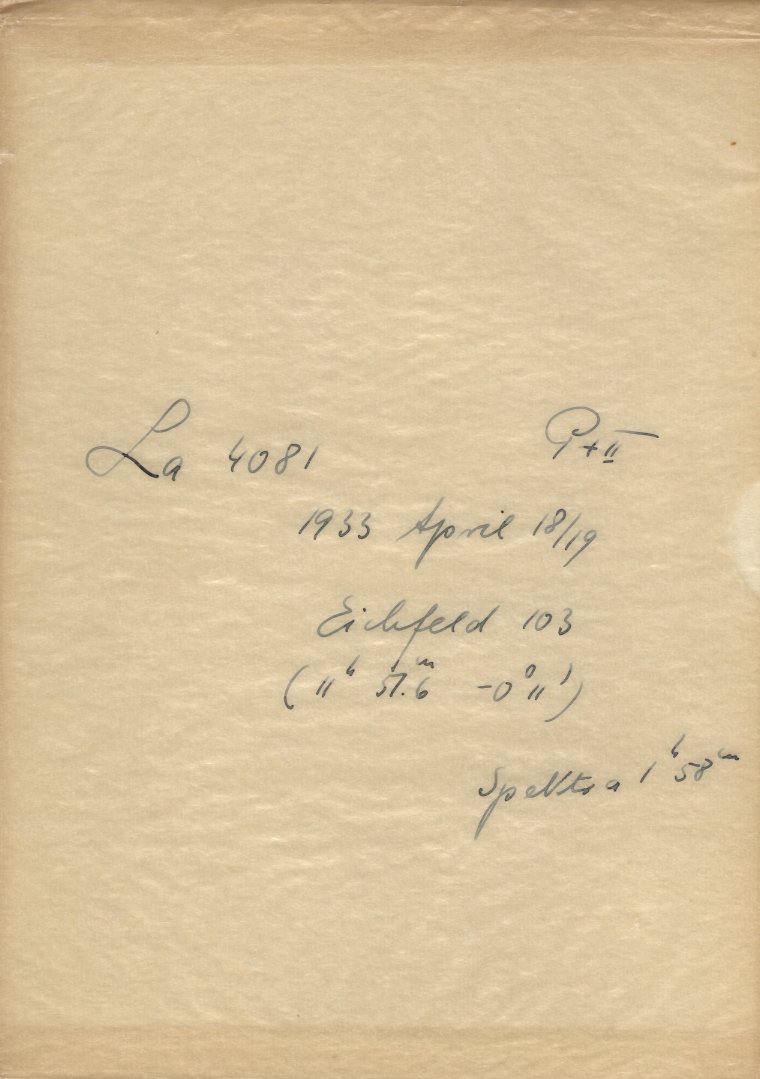 La 4081 P+II
1933 April 18/19
Eichfeld 103
(11ʰ 51.6ᵐ -0° 11')
Spektra 1ʰ 58ᵐ